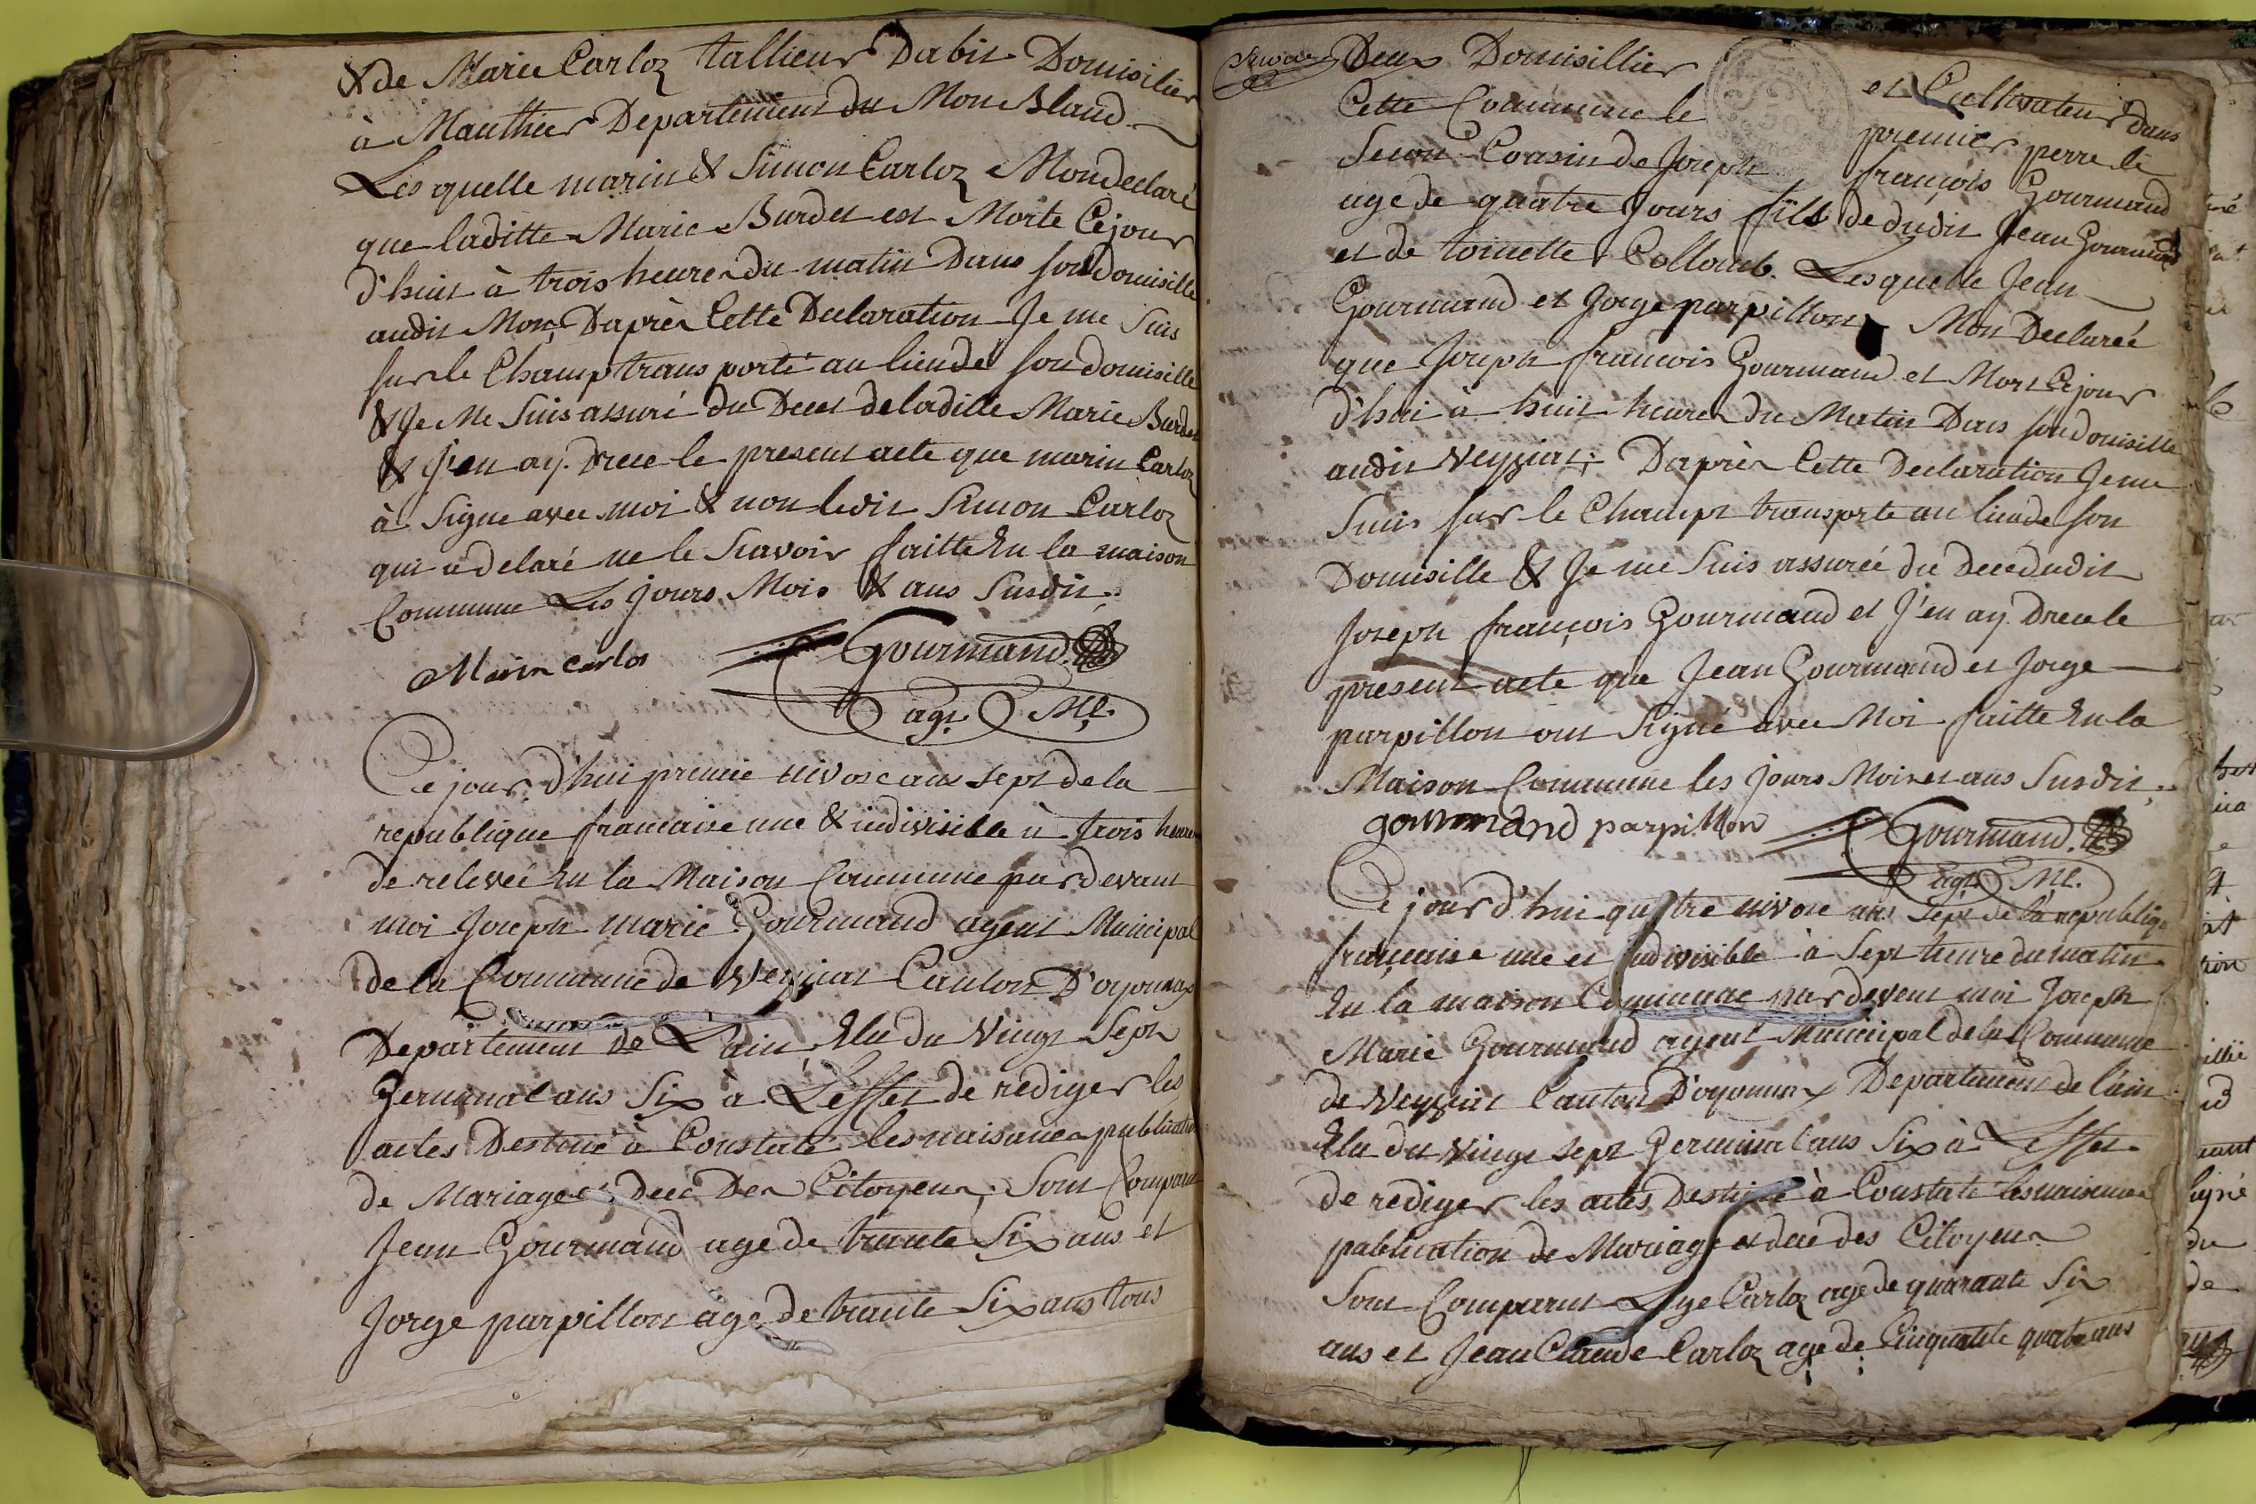 & de Marie Carloz tallieur Dabit Domisilier
à Manthier Departement du Mon Bland
Les quelle marin & Simon Carloz Mon declaré
que laditte Marie Burdet est Morte Cejour
d'huit à trois heures du matin Dans son domisille
audit Mon, Daprès Cette Declaration Je me Suis
sur le Champ trans porté au lieu de son domisille
& Je Me Suis assuré du Deces de laditte Marie Burdet
& J'en ay. Drece le present acte que marin Carloz
à Signe avec moi & non ledit Simon Carloz
qui à delaré ne le Scavoir faitte En la maison
Commune Les jours Mois & ans Susdit.
Marin carlos Gourmand
agt. Ml.
Ce jour d'hui premie nivose ans sept de la
republique francaise une & indivisible à trois heures
de relevée En la Maison Commune par devant
moi Joseph marie Gourmand agent Municipal
de la Commune de Veyziat Canton D'oyonnax
Departement de L'ain, Elu du Vingt Sept
Germinal ans Six à L'effet de rediger les
actes Destiné à Constaté les naisances publication
de Mariage et dece Des Citoyens, Sont Comparu
Jean Gourmand age de trante Six ans et
Jorge parpillon age de trante Six ans tous
Deux Domisillier et Cultivateur dans
Cette Commune le premier perre le
Secon Cousin de Joseph françois Gourmand
age de quatre Jours fils de dudit Jean Gourmand
et de toinette Collomb. Lesquelle Jean
Gourmand et Jorge parpillon Mon Declareé
que Joseph francois Gourmand et Mort Cejour
d'hui à huit heures du Matin Dans son domisille
audit Veyziat; Daprès Cette Declaration Jeme
Suis sur le Champt transporte au lieu de son
Domisille & Je me Suis assureé du Decedudit
Joseph françois Gourmand et J'en ay. Drece le
present acte que Jean Gourmand et Jorge
parpillon ont Signé avec Moi faitte En la
Maison Commune les jours Moi et ans Susdit.
gourmand parpillon Gourmand.
agt. Ml.
Ce jour d'hui quatre nivose ans Sept de la republique
française une et indivisible à Sept heure du matin
En la maison Commune par devent moi Joseph
Marie Gourmand agent Municipal de la Commune
de Veyziat Canton D'oyonnax Departement de l'ain
Elu du Vingt sept Germinal ans Six à L'effet
de rediger les actes Destiné à Constaté les naisences
publication de Mariage et dece des Citoyens
Sont Comparut Carloz age de quarante Six
ans et Jean Claude Carloz age de Cinquante quatre ans